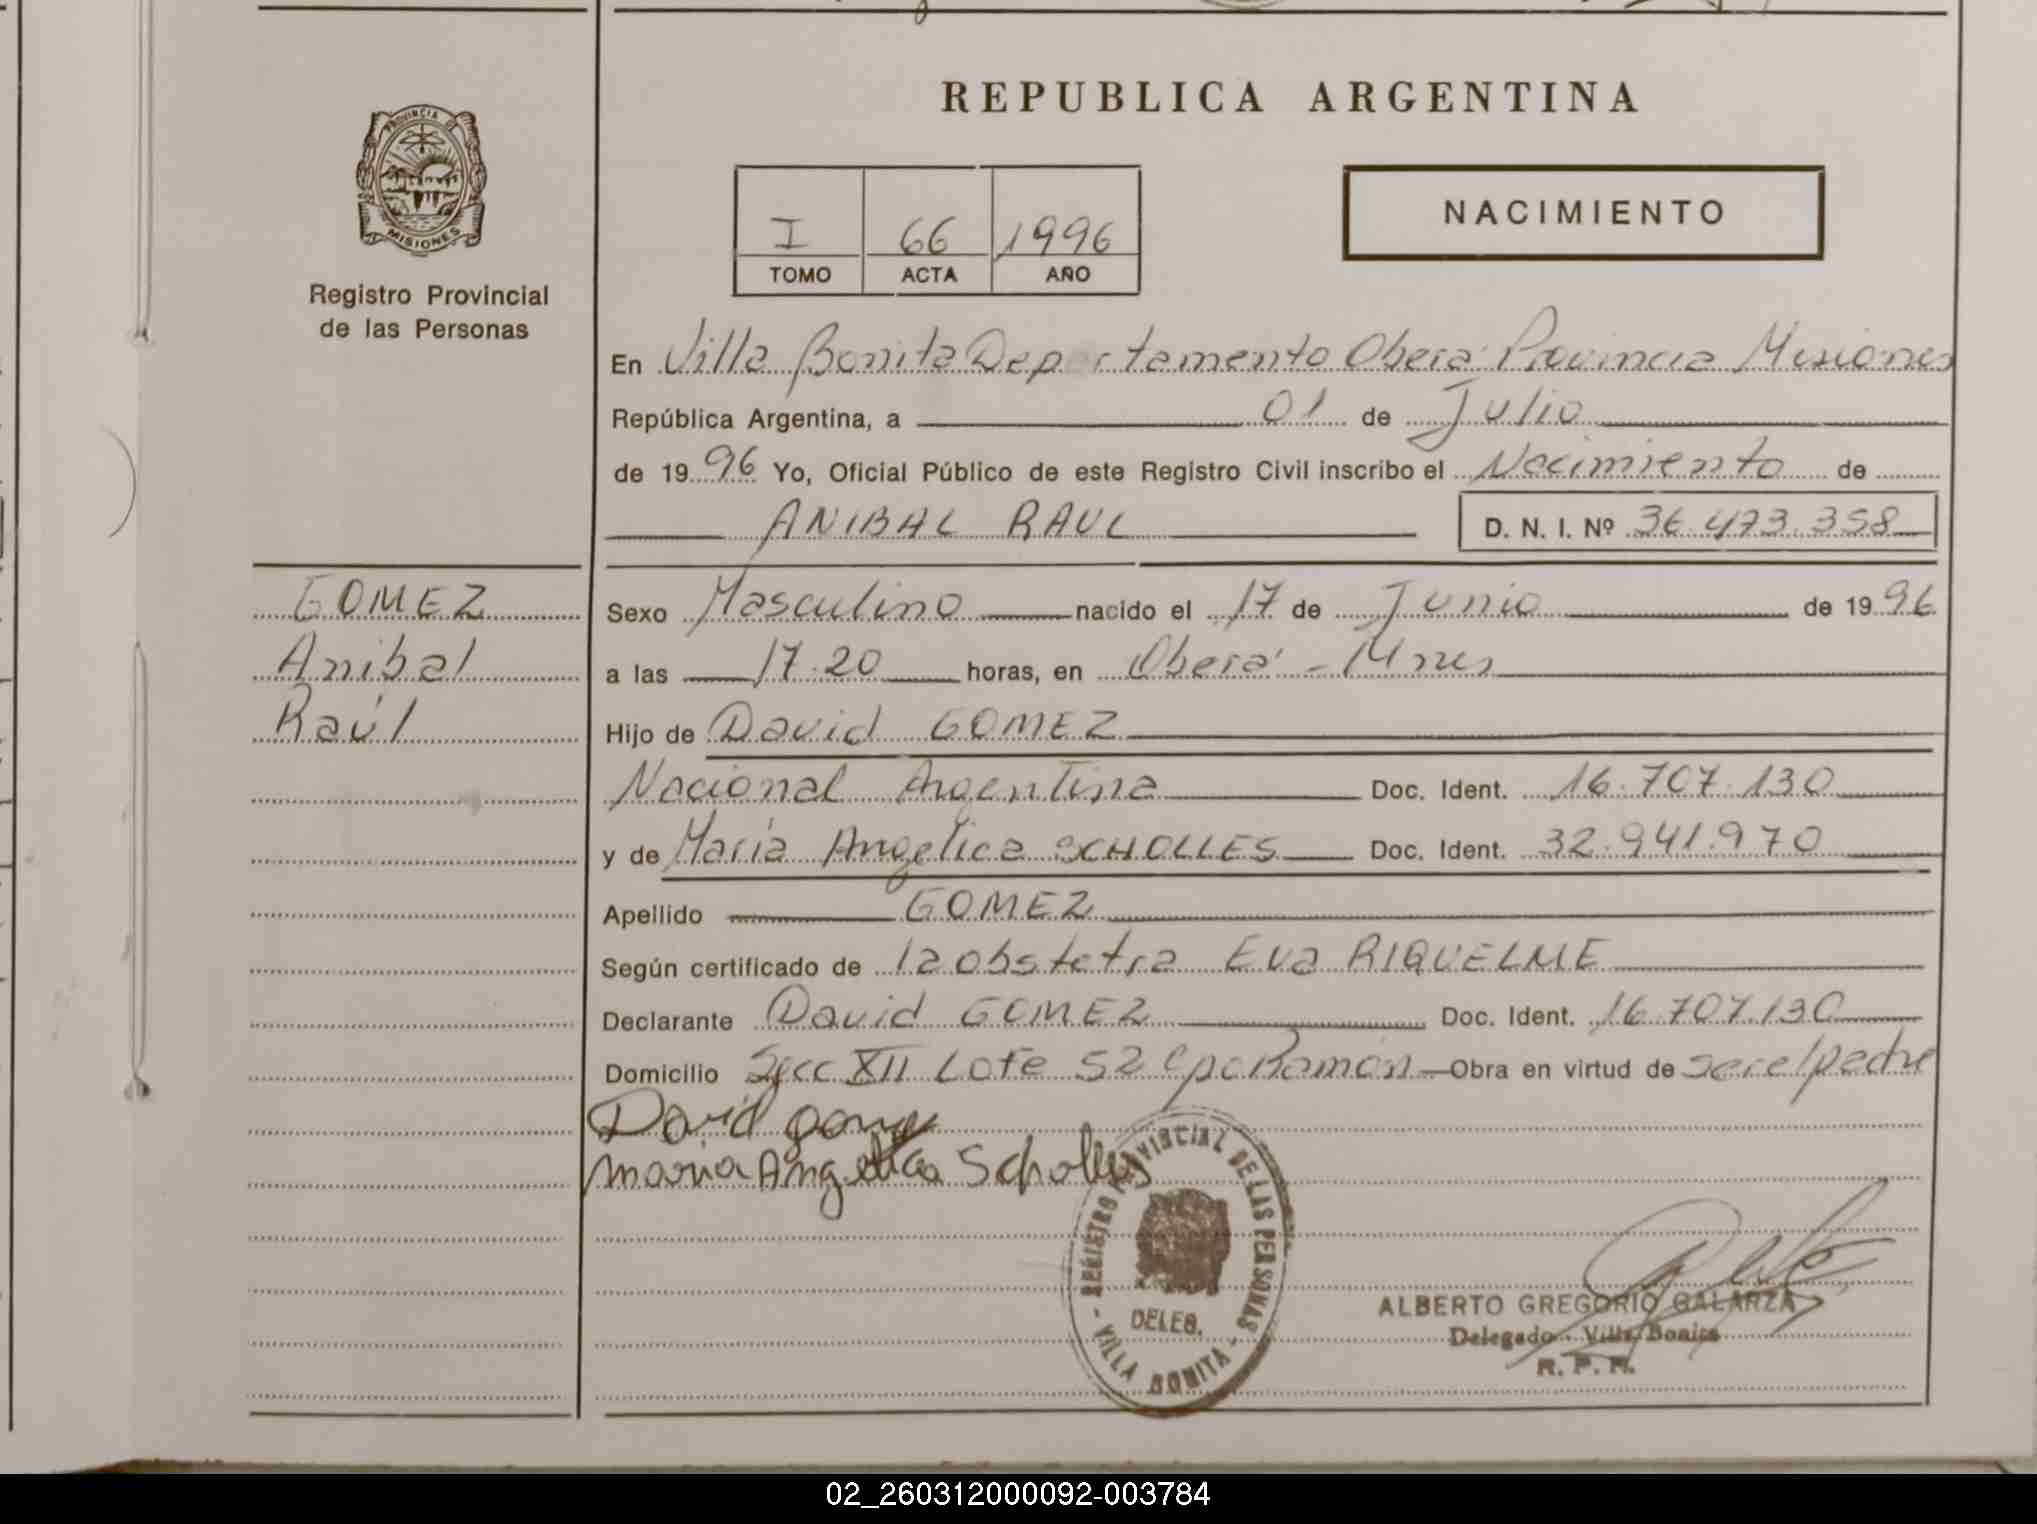 REPUBLICA ARGENTINA
PROVINCIA DE
MISIONES
Registro Provincial
de las Personas
I 66 1996
TOMO ACTA AÑO
NACIMIENTO
En Villa Bonita Departamento Oberá Provincia Misiones
República Argentina, a 01 de Julio
de 1996 Yo, Oficial Público de este Registro Civil inscribo el Nacimiento de
ANIBAL RAUL D. N. I. Nº 36.473.358
GOMEZ
Anibal
Raúl
Sexo Masculino nacido el 17 de Junio de 1996
a las 17.20 horas, en Oberá - Mnes
Hijo de David GOMEZ
Nacional Argentina Doc. Ident. 16.707.130
y de María Angelica SCHOLLES Doc. Ident. 32.941.970
Apellido GOMEZ
Según certificado de la obstetra Eva RIQUELME
Declarante David GOMEZ Doc. Ident. 16.707.130
Domicilio Secc XII Lote 52 Cpo Ramón Obra en virtud de ser el padre
David gomez
maria Angelica Scholles
REGISTRO PROVINCIAL DE LAS PERSONAS
DELEG.
- VILLA BONITA -
ALBERTO GREGORIO GALARZA
Delegado - Villa Bonita
R. P. P.
02_260312000092-003784